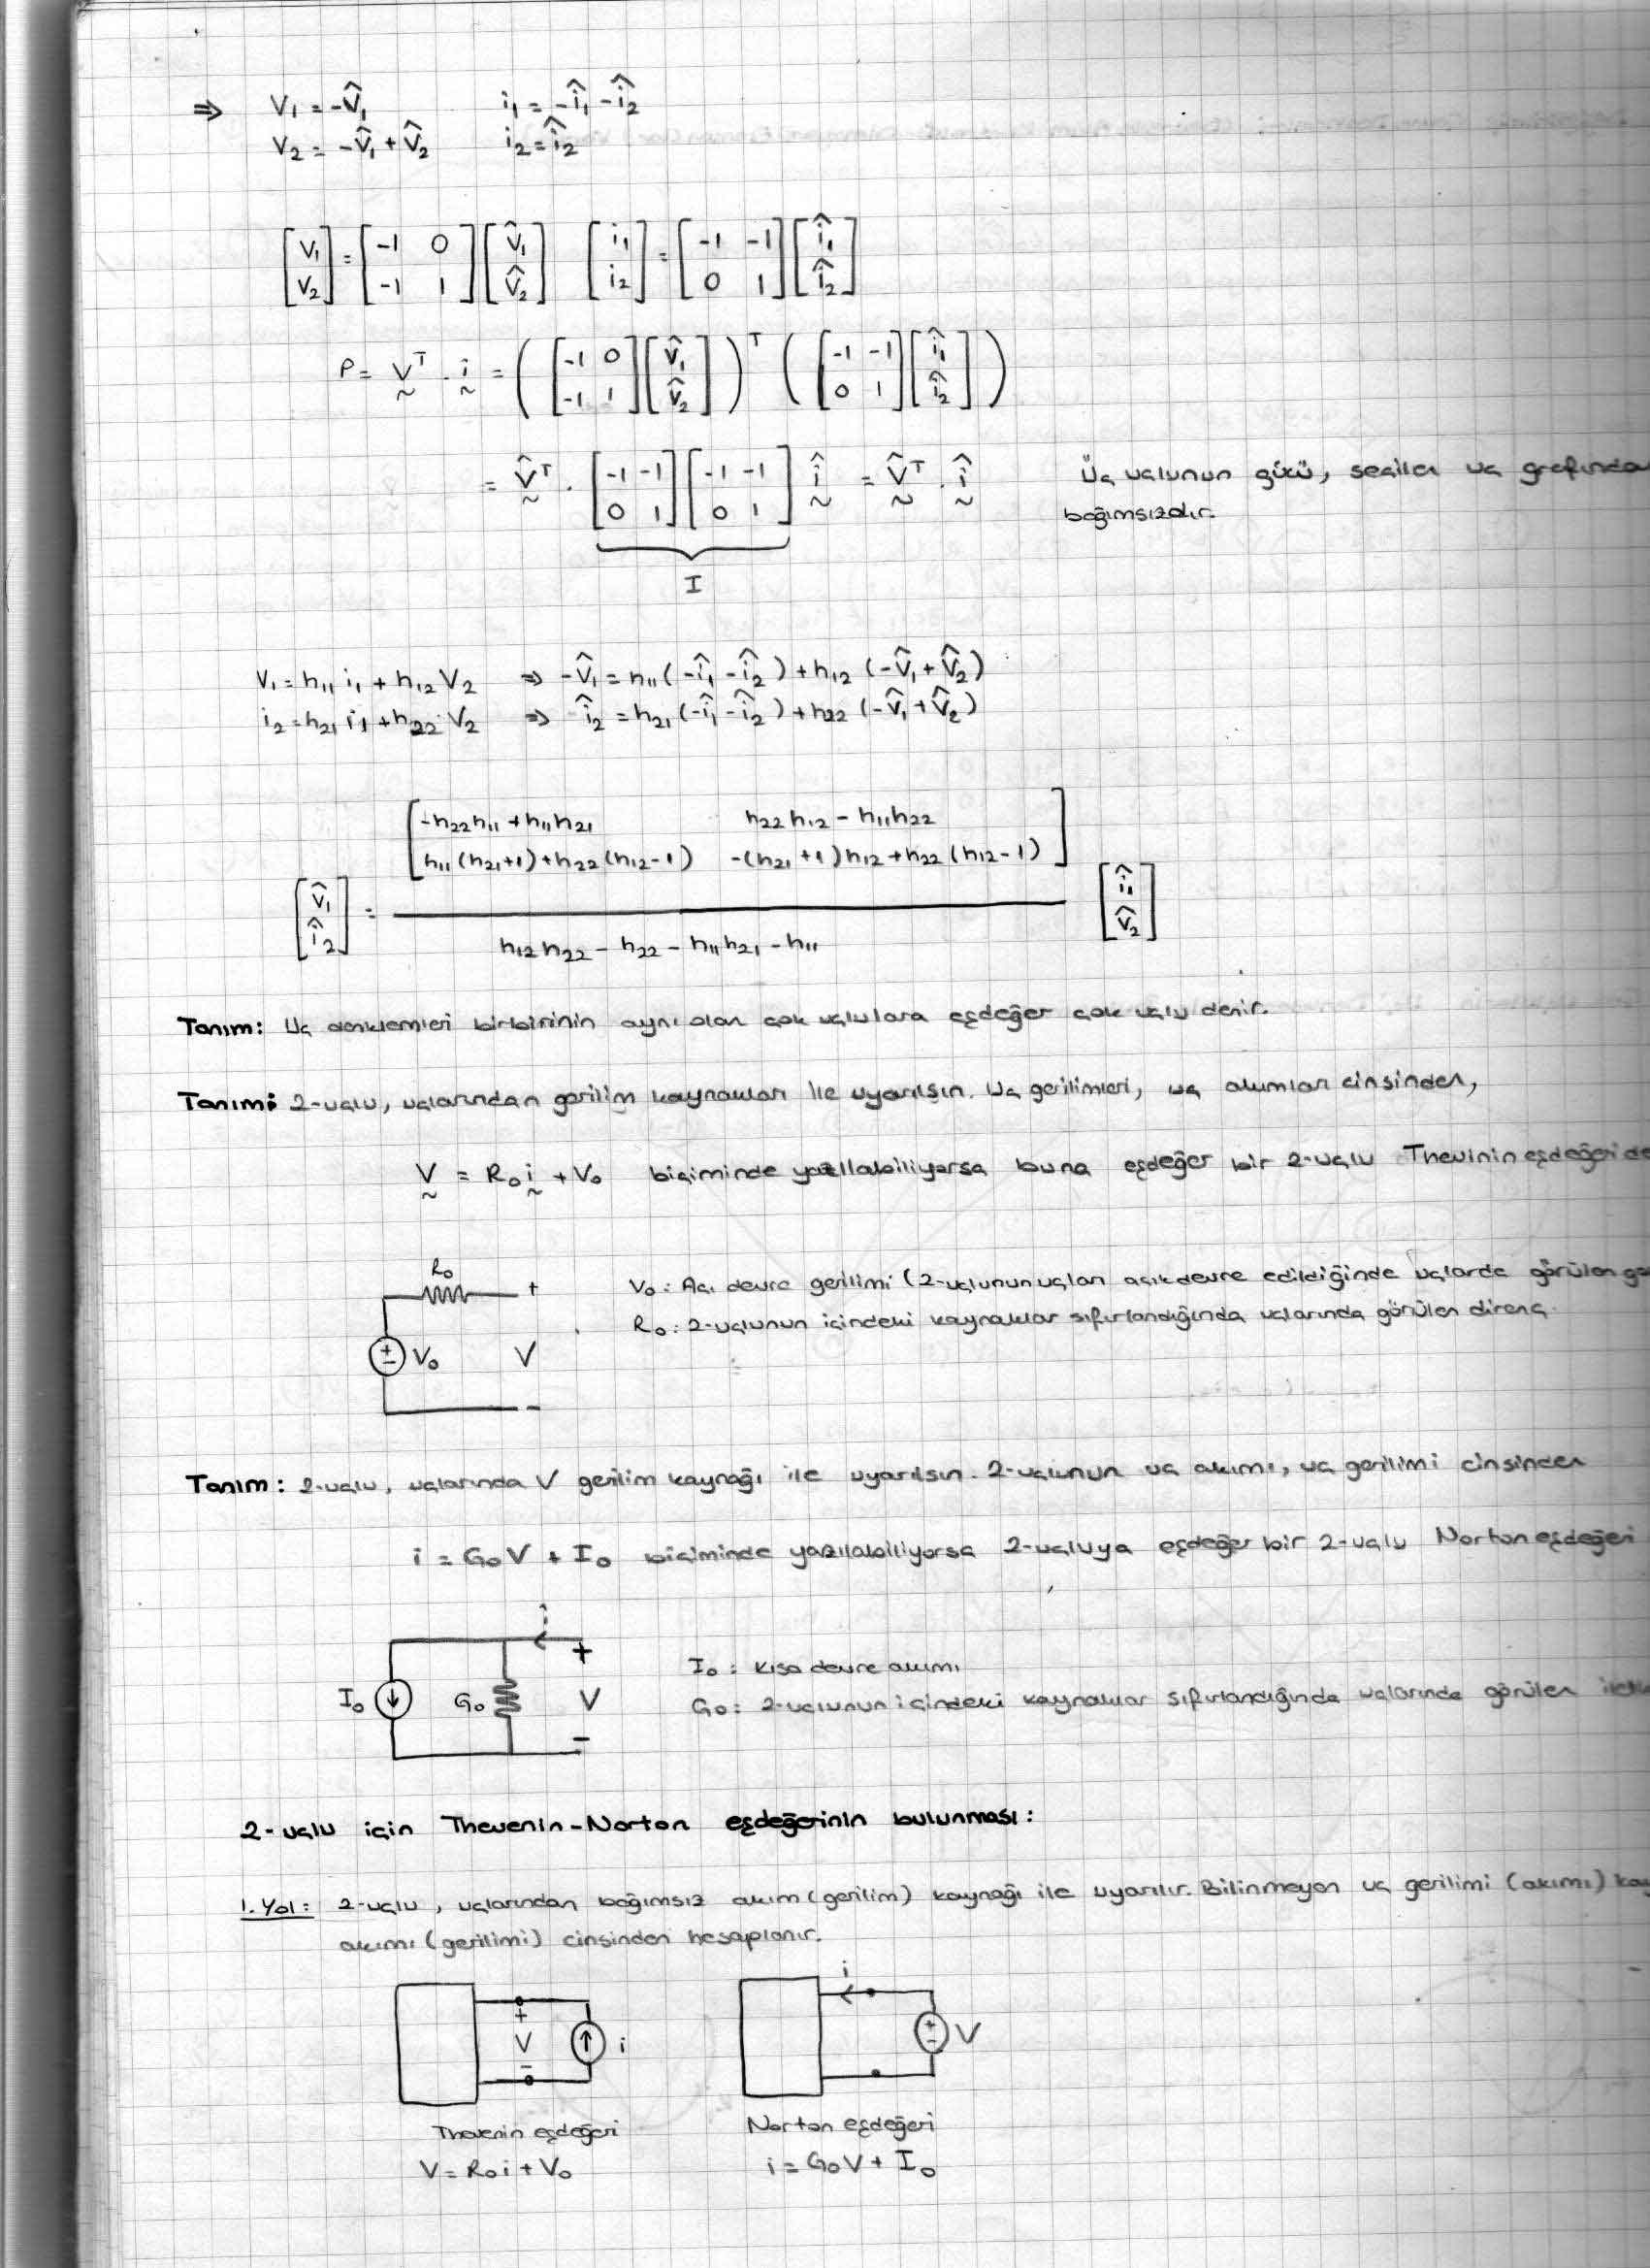 ⇒ V₁ = -V̂₁ i₁ = -î₁ - î₂
V₂ = -V̂₁ + V̂₂ i₂ = î₂
[V₁ V₂] = [-1 0; -1 1] [V̂₁ V̂₂] [i₁ i₂] = [-1 -1; 0 1] [î₁ î₂]
P = Vᵀ . i = ([-1 0; -1 1] [V̂₁ V̂₂])ᵀ ([-1 -1; 0 1] [î₁ î₂])
= V̂ᵀ . [-1 -1; 0 1] [-1 -1; 0 1] î = V̂ᵀ . î Üç uçlunun gücü, seçilen uç grafından
bağımsızdır.
I
V₁ = h₁₁ i₁ + h₁₂ V₂ ⇒ -V̂₁ = h₁₁ (-î₁ - î₂) + h₁₂ (-V̂₁ + V̂₂)
i₂ = h₂₁ i₁ + h₂₂ V₂ ⇒ î₂ = h₂₁ (-î₁ - î₂) + h₂₂ (-V̂₁ + V̂₂)
-h₂₂h₁₁ + h₁₁h₂₁ h₂₂h₁₂ - h₁₁h₂₂
h₁₁(h₂₁+1) + h₂₂(h₁₂-1) -(h₂₁+1)h₁₂ + h₂₂(h₁₂-1)
[V̂₁ î₂] = [î₁ V̂₂]
h₁₂h₂₂ - h₂₂ - h₁₁h₂₁ - h₁₁
Tanım: Uç denklemleri birbirinin aynı olan çok uçlulara eşdeğer çok uçlu denir.
Tanım: 2-uçlu, uçlarından gerilim kaynakları ile uyarılsın. Uç gerilimleri, uç akımları cinsinden,
V = R₀ i + V₀ biçiminde yazılabiliyorsa buna eşdeğer bir 2-uçlu Thevinin eşdeğeri de
R₀
+
V₀ V
-
V₀: Açı devre gerilimi (2-uçlunun uçları açık devre edildiğinde uçlarda görülen ge
R₀: 2-uçlunun içindeki kaynaklar sıfırlandığında uçlarında görülen direnç.
Tanım: 2-uçlu, uçlarında V gerilim kaynağı ile uyarılsın. 2-uçlunun uç akımı, uç gerilimi cinsinden
i = G₀V + I₀ biçiminde yazılabiliyorsa 2-uçluya eşdeğer bir 2-uçlu Norton eşdeğeri
i
+
I₀ G₀ V
-
I₀: Kısa devre akımı
G₀: 2-uçlunun içindeki kaynaklar sıfırlandığında uçlarında görülen
2-uçlu için Thevenin-Norton eşdeğerinin bulunması:
1. Yol: 2-uçlu, uçlarından bağımsız akım (gerilim) kaynağı ile uyarılır. Bilinmeyen uç gerilimi (akımı)
akımı (gerilimi) cinsinden hesaplanır.
+ V - i
i + - V
Thevenin eşdeğeri
V = R₀i + V₀
Norton eşdeğeri
i = G₀V + I₀